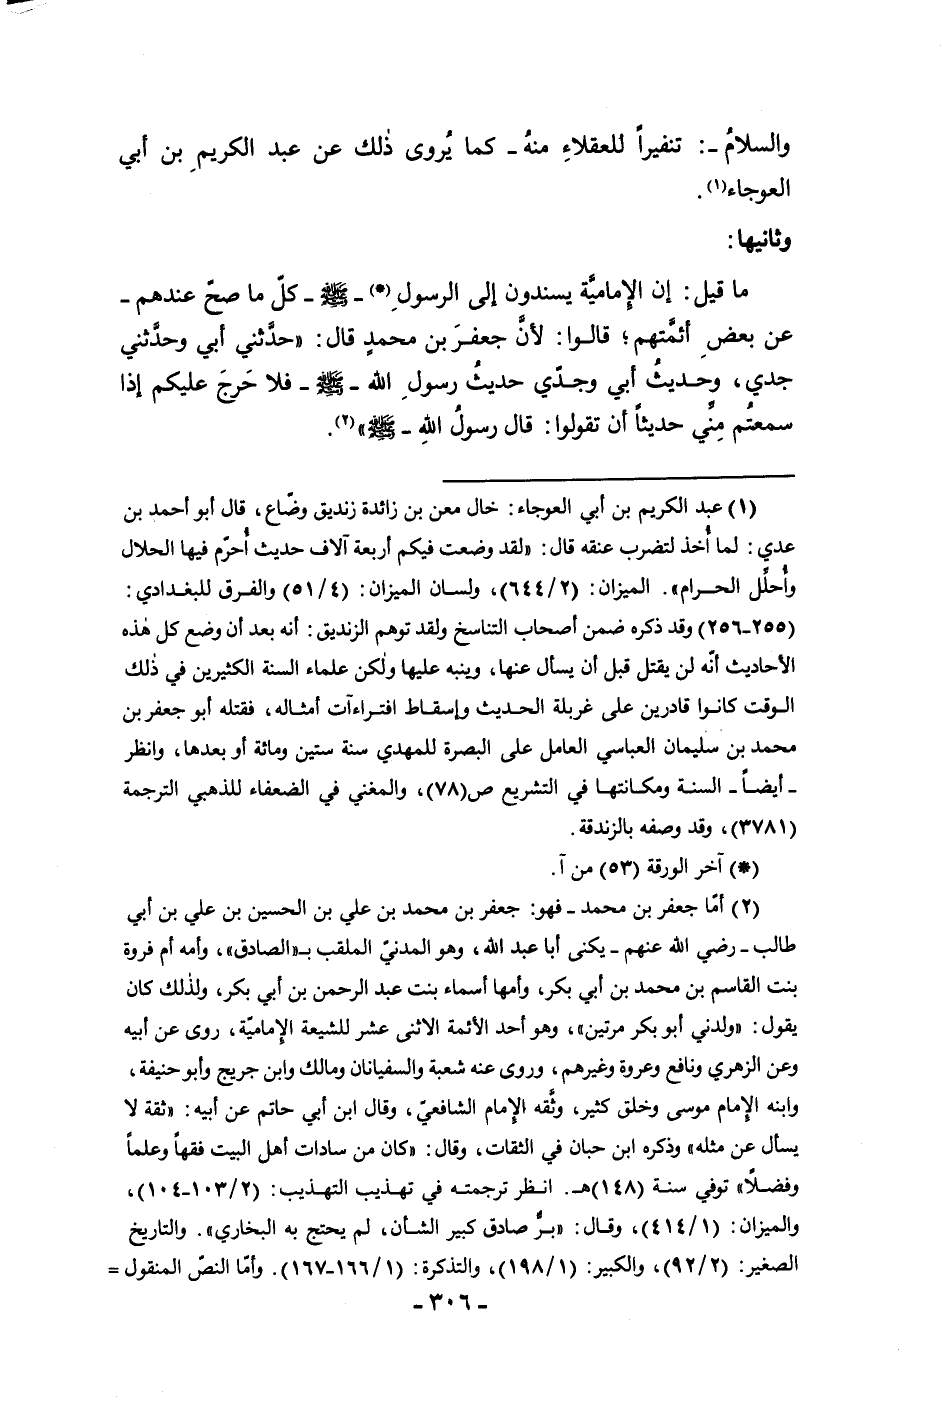 والسلامُ -: تنفيراً للعقلاءِ منهُ - كما يُروى ذٰلك عن عبد الكريمِ بن أبي
العوجاء(١).
وثانيها:
ما قيل: إن الإماميَّة يسندون إلى الرسولِ(*) - ﷺ - كلّ ما صحّ عندهم -
عن بعضِ أئمَّتهم؛ قالوا: لأنَّ جعفرَ بن محمدٍ قال: «حدَّثني أبي وحدَّثني
جدي، وحديثُ أبي وجدّي حديثُ رسولِ الله - ﷺ - فلا حَرجَ عليكم إذا
سمعتُم مِنِّي حديثاً أن تقولوا: قال رسولُ اللهِ - ﷺ»(٢).
(١) عبد الكريم بن أبي العوجاء: خال معن بن زائدة زنديق وضّاع، قال أبو أحمد بن
عدي: لما أُخذ لتضرب عنقه قال: «لقد وضعت فيكم أربعة آلاف حديث أُحرّم فيها الحلال
وأُحلِّل الحرام». الميزان: (٦٤٤/٢)، ولسان الميزان: (٥١/٤) والفرق للبغدادي:
(٢٥٥-٢٥٦) وقد ذكره ضمن أصحاب التناسخ ولقد توهم الزنديق: أنه بعد أن وضع كل هٰذه
الأحاديث أنّه لن يقتل قبل أن يسأل عنها، وينبه عليها ولٰكن علماء السنة الكثيرين في ذٰلك
الوقت كانوا قادرين على غربلة الحديث وإسقاط افتراءآت أمثاله، فقتله أبو جعفر بن
محمد بن سليمان العباسي العامل على البصرة للمهدي سنة ستين ومائة أو بعدها، وانظر
- أيضاً - السنة ومكانتها في التشريع ص(٧٨)، والمغني في الضعفاء للذهبي الترجمة
(٣٧٨١)، وقد وصفه بالزندقة.
(*) آخر الورقة (٥٣) من آ.
(٢) أمّا جعفر بن محمد - فهو: جعفر بن محمد بن علي بن الحسين بن علي بن أبي
طالب - رضي الله عنهم - يكنى أبا عبد الله، وهو المدنيّ الملقب بـ«الصادق»، وأمه أم فروة
بنت القاسم بن محمد بن أبي بكر، وأمها أسماء بنت عبد الرحمن بن أبي بكر، ولذٰلك كان
يقول: «ولدني أبو بكر مرتين»، وهو أحد الأئمة الاثنى عشر للشيعة الإماميّة، روى عن أبيه
وعن الزهري ونافع وعروة وغيرهم، وروى عنه شعبة والسفيانان ومالك وابن جريج وأبو حنيفة،
وابنه الإمام موسى وخلق كثير، وثَّقه الإمام الشافعيّ، وقال ابن أبي حاتم عن أبيه: «ثقة لا
يسأل عن مثله» وذكره ابن حبان في الثقات، وقال: «كان من سادات أهل البيت فقهاً وعلماً
وفضلاً» توفي سنة (١٤٨)هـ. انظر ترجمته في تهذيب التهذيب: (١٠٣/٢-١٠٤)،
والميزان: (٤١٤/١)، وقال: «برٌّ صادق كبير الشأن، لم يحتج به البخاري». والتاريخ
الصغير: (٩٢/٢)، والكبير: (١٩٨/١)، والتذكرة: (١٦٦/١-١٦٧). وأمّا النصّ المنقول =
- ٣٠٦ -